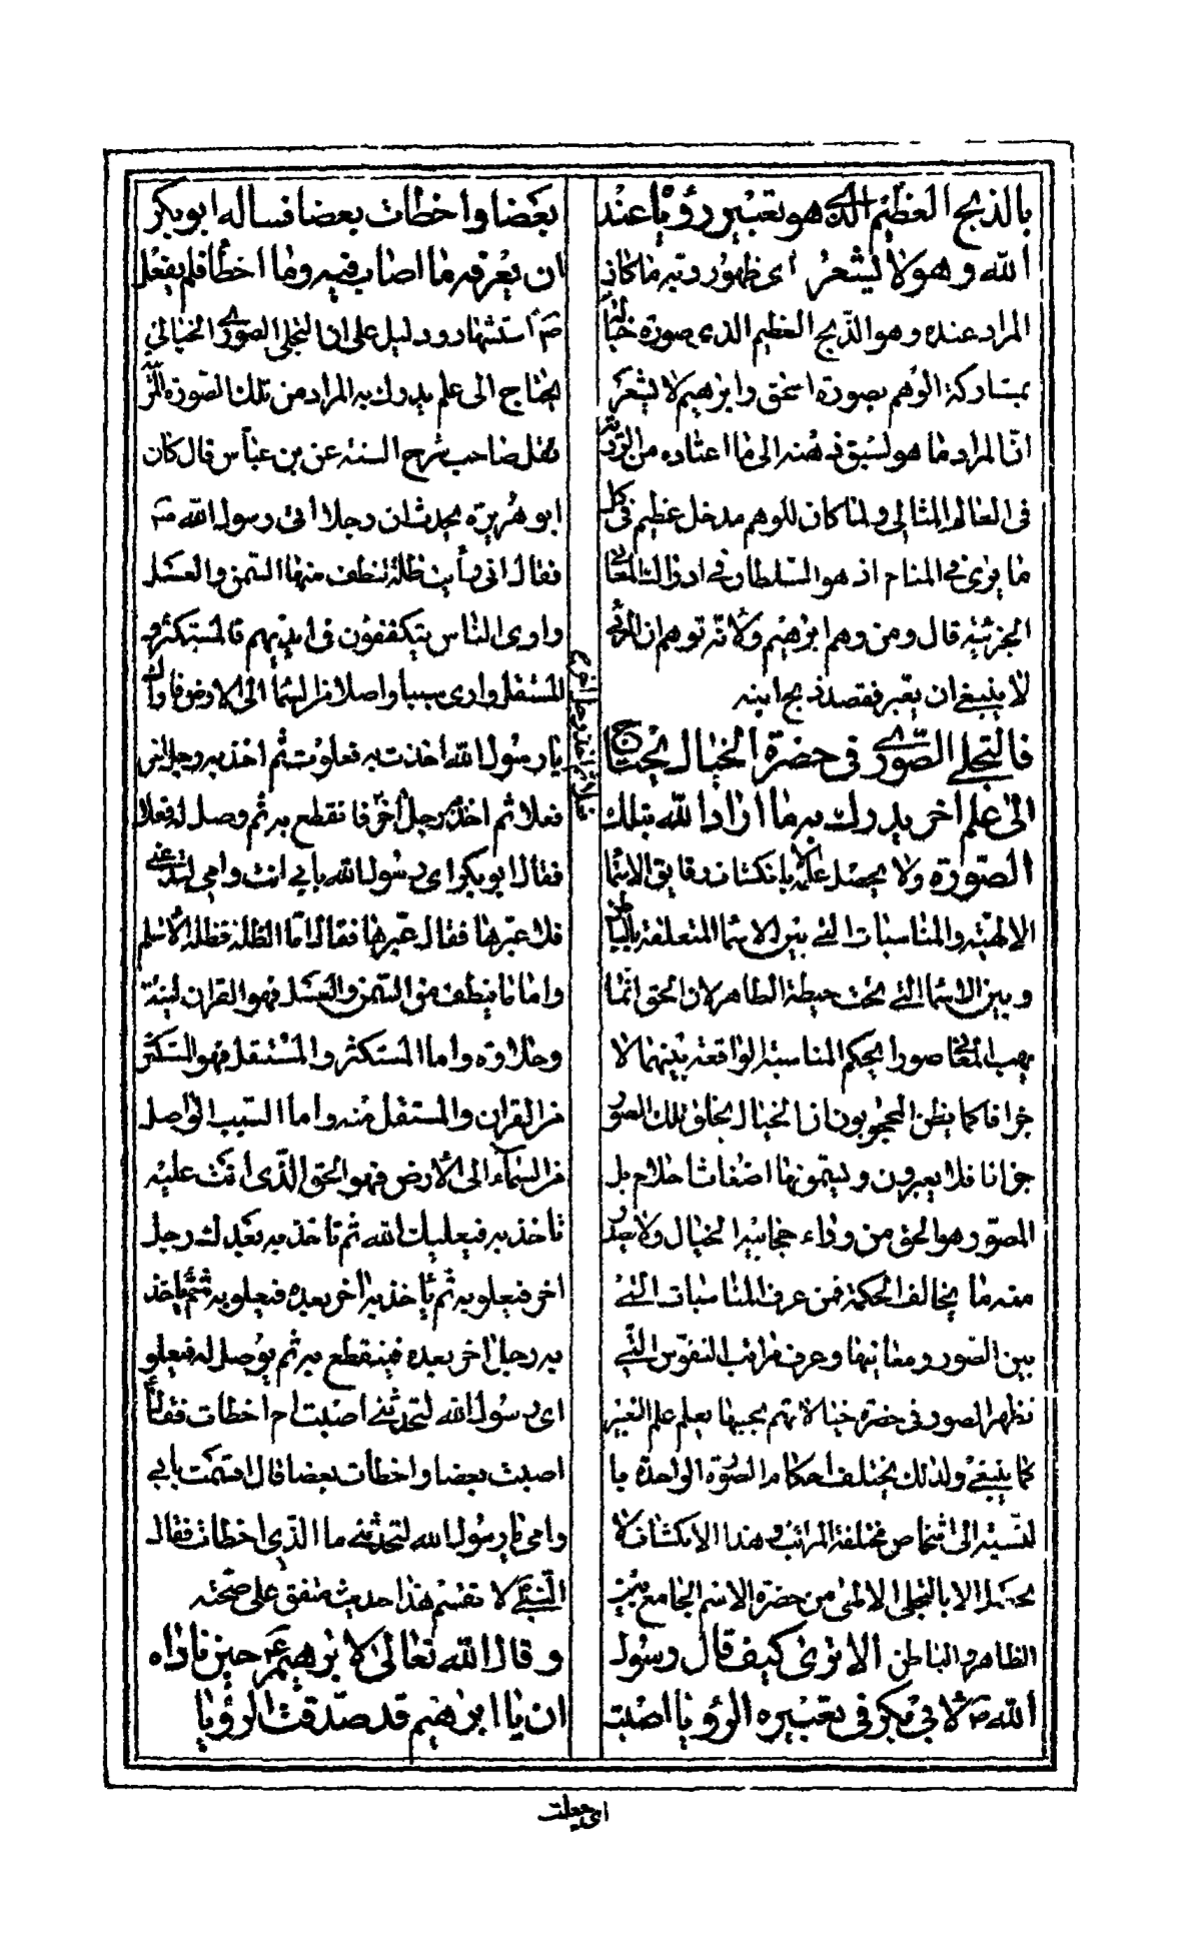 بالذبح العظيم الذى هو تعبير رؤياه عند
الله وهو لا يشعر اى ظهور ربه ما كان
المراد عنده وهو الذبح العظيم الذى صوره خياله
بمشاركة الوهم بصورة اسحق وابرهيم لا يشعر
انّ المراد ما هو لسبق ذهنه الى ما اعتاده من الرؤية
فى العالم المثالى ولما كان للوهم مدخل عظيم فى كل
ما يرى فى المنام اذ هو السلطان فى ادراك المعانى
الجزئية قال ومن وهم ابرهيم ولانّه توهم ان المرئى
لا ينبغى ان يعبر فقصد ذبح ابنه
فالتجلى الصورى فى حضرة الخيال يحتاج
الى علم اخر يدرك به ما اراد الله بتلك
الصورة ولا يحصل علمه بانكشاف دقايق الاسما
الالهيّة والمناسبات التى بين الاسما المتعلقة بالباطن
وبين الاسما التى تحت حيطة الظاهر لان الحق انّما
يهب المعانى صورا بحكم المناسبة الواقعة بينهما لا
جزافا كما يظن المحجوبون ان الخيال يخلق تلك الصور
جزافا فلا يعبرون ويسمونها اضغاث احلام بل
المصوّر هو الحق من وراء حجابية الخيال ولا يصدر
منه ما يخالف الحكمة فمن عرف المناسبات التى
بين الصور ومعانيها وعرف مراتب النفوس التى
تظهر الصور فى حضرة خيالاتهم بحسبها يعلم علم التعبير
كما ينبغى ولذلك يختلف احكام الصورة الواحدة با
لنسبة الى اشخاص مختلفة المراتب وهذا الانكشاف لا
يحصل الا بالتجلى الالهى من حضرة الاسم الجامع بين
الظاهر والباطن الا ترى كيف قال رسول
الله ص لابى بكر فى تعبيره الرؤيا اصبت
بعضا واخطات بعضا فساله ابو بكر
ان يعرفه ما اصاب فيه وما اخطأ فلم يفعل
ص استشهاد ودليل على ان التجلى الصورى الخيالى
يحتاج الى علم يدرك به المراد من تلك الصورة المرئية
نقل صاحب شرح السنه عن بن عباس قال كان
ابو هريرة يحدث ان رجلا اتى رسول الله ص
فقال انى رأيت ظلة تنطف منها السّمن والعسل
وارى الناس يتكففون فى ايديهم فالمستكثر و
المستقل وارى سببا واصلا من السّما الى الارض فاراك
يا رسول الله اخذت به فعلوت ثم اخذ به رجل اخر
فعلا ثم اخذ به رجل اخر فانقطع به ثم وصل له فعلا
فعلا ثم اخذ رجل اخر به
فقال ابو بكر اى رسول الله بابى انت وامى لتدعنى
فلاعبّرها فقال عبّرها فقال امّا الظله فظله الاسلم
واما ما ينطف من السّمن والعسل فهو القران لينه
وحلاوته واما المستكثر والمستقل فهو المستكثر
من القران والمستقل منه واما السّبب الواصل
من السّماء الى الارض فهو الحق الّذى انت عليه
تاخذ به فيعليك الله ثم تاخذ به بعدك رجل
اخر فيعلو به ثم يأخذ به اخر بعده فيعلو به ثم ياخذ
به رجل اخر بعده فينقطع به ثم يوصل له فيعلو
اى رسول الله لتحدثنى اصبت ام اخطات فقال
اصبت بعضا واخطأت بعضا قال اقسمت بابى
وامى يا رسول الله لتحدثنى ما الّذى اخطات فقال
النّبى لا تقسم هذا حديث متفق على صحّته
وقال الله تعالى لابرهيم عم حين ناداه
ان يا ابرهيم قد صدّقت الرؤيا
اى جعلت